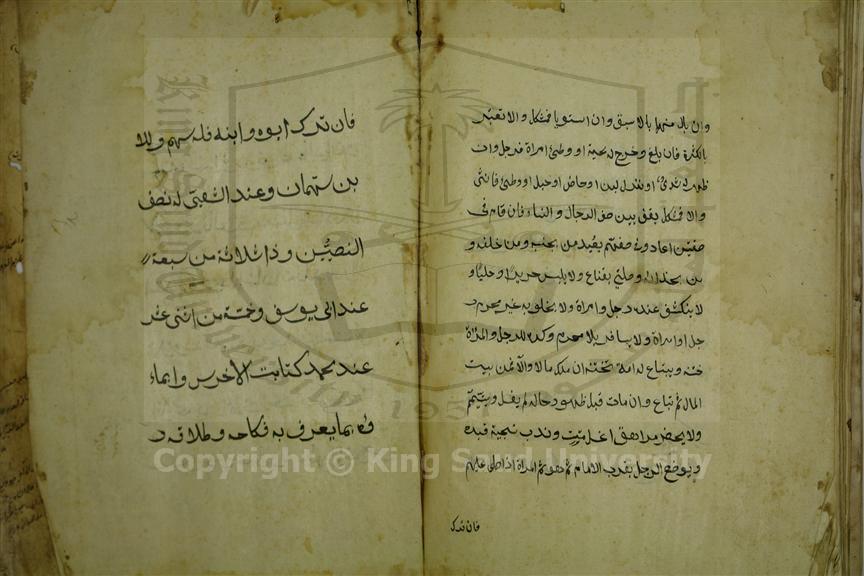 وان بال منهما بالاسبق وان استويا فمشكل ولا تعتبر
بالكثرة فان بلغ وخرج له لحية او وطئ امراة فرجل وان
ظهر له ثدي او نزل لبن او حاض او حبل او وطئ فانثى
والا فمشكل يقف بين صف الرجال والنساء فان قام في
صفهن اعاد وفي صفهم يعيد من بجنبه ومن خلفه و
من بحذائه وصلى بقناع ولا يلبس حريرا وحليا و
لا ينكشف عند رجل وامراة ولا يخلو به غير محرم ر
جل او امراة ولا يسافر بلا محرم وكره للرجل والمراة
ختنه ويبتاع له امة تختنه ان ملك مالا والا فمن بيت
المال ثم تباع وان مات قبل ظهور حاله لم يغسل ويتيمم
ولا يحضر مراهقا غسل ميت وندب تسجية قبره
ويوضع الرجل بقرب الامام ثم هو ثم المراة اذا صلى عليهم
فان ترك
فان ترك ابوه وابنه فله سهم وللا
بن سهمان وعند الشعبي له نصف
النصيبين وذا ثلاثة من سبعة
عند ابي يوسف وخمسة من اثنى عشر
عند محمد كتابت الاخرس وايماء
وه بما يعرف به نكاحه وطلاقه و
Copyright © King Saud University
King Saud University
1957